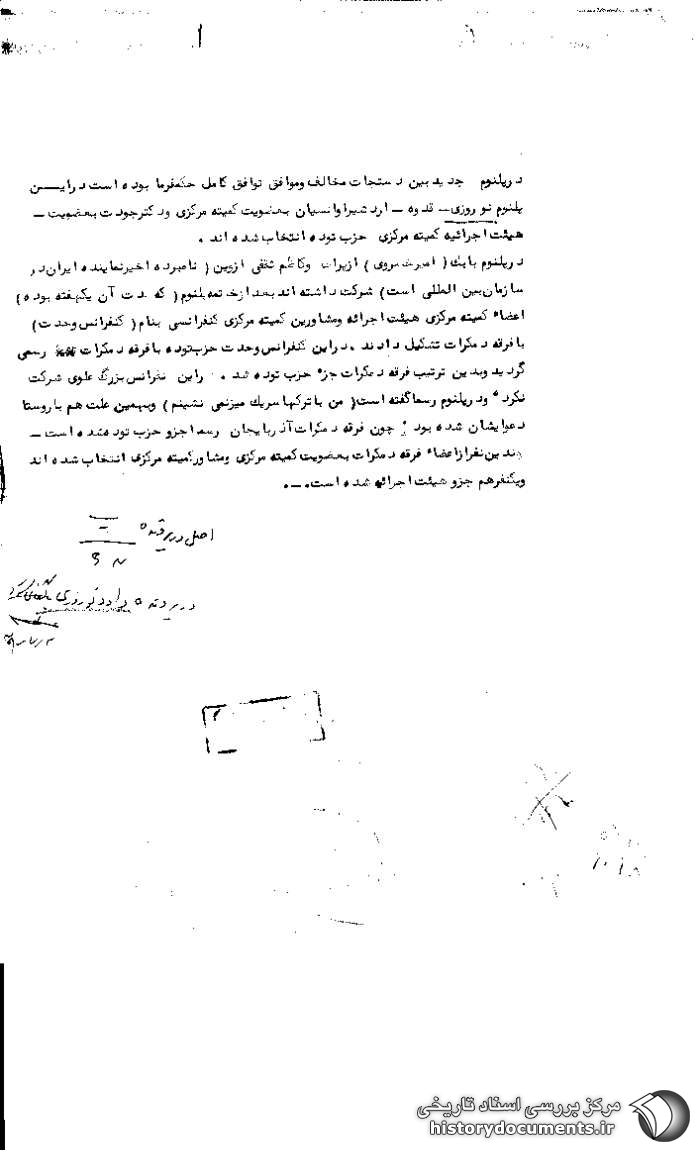 در پلنوم جدید بین دستجات مخالف وموافق توافق کامل حکمفرما بوده است دراین
پلنوم نوروزی - قدوه - اردشیراوانسیان بعضویت کمیته مرکزی ودکترجودت بعضویت -
هیئت اجرائیه کمیته مرکزی حزب توده انتخاب شده اند .
در پلنوم بابک ( امیرخسروی ) ازپراک وکاظم ثقفی ازوین ( نامبرده اخیرنماینده ایران در
سازمان بین المللی است ) شرکت داشته اند بعد ازخاتمه پلنوم ( که مدت آن یکهفته بوده )
اعضاء کمیته مرکزی هیئت اجرائه ومشاورین کمیته مرکزی کنفرانسی بنام ( کنفرانس وحدت )
با فرقه دمکرات تشکیل دادند . دراین کنفرانس وحدت حزب توده با فرقه دمکرات رسمی
گردید وبدین ترتیب فرقه دمکرات جزء حزب توده شد . دراین کنفرانس بزرگ علوی شرکت
نکرده ودر پلنوم رسما گفته است ( من با ترکها سریک میزنمی نشینم ) وبهمین علت هم با روستا
دعوایشان شده بود چون فرقه دمکرات آذربایجان رسما جزو حزب توده شده است -
چندین نفرازاعضاء فرقه دمکرات بعضویت کمیته مرکزی ومشاورکمیته مرکزی انتخاب شده اند
ویکنفرهم جزو هیئت اجرائه شده است . - .
اصل در پرونده
در پرونده داود نوروزی
مرکز بررسی اسناد تاریخی
historydocuments.ir